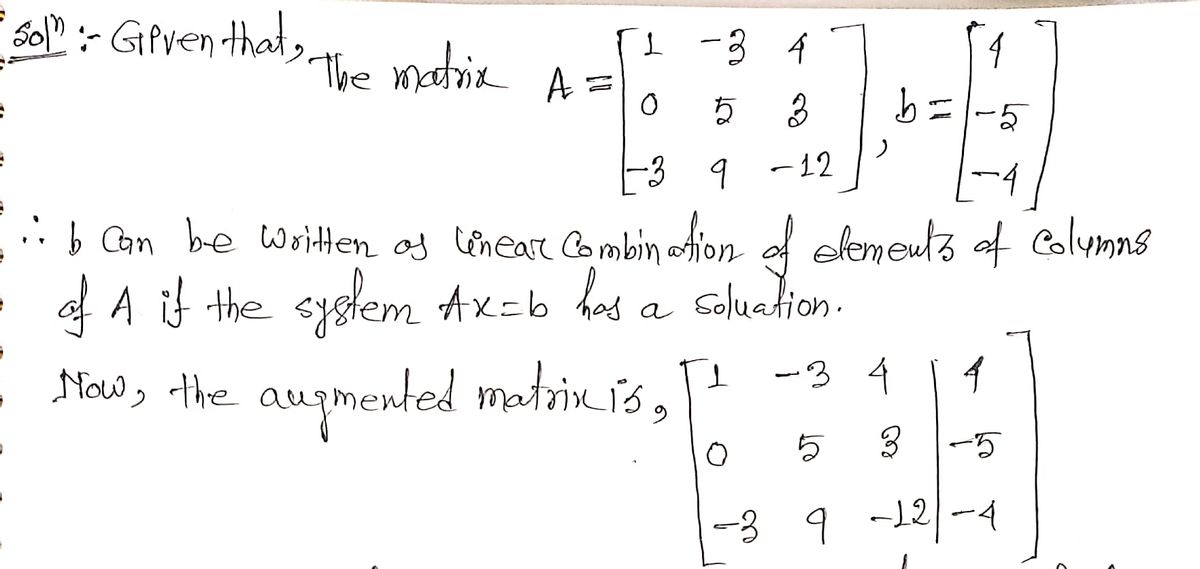 Solⁿ :- Given that,
The matrix A = [1 -3 4; 0 5 3; -3 9 -12], b = [4; -5; -4]
∴ b Can be written as linear Combination of elements of Columns
of A if the system Ax=b has a soluation.
Now, the augmented matrix is, [1 -3 4 | 4; 0 5 3 | -5; -3 9 -12 | -4]